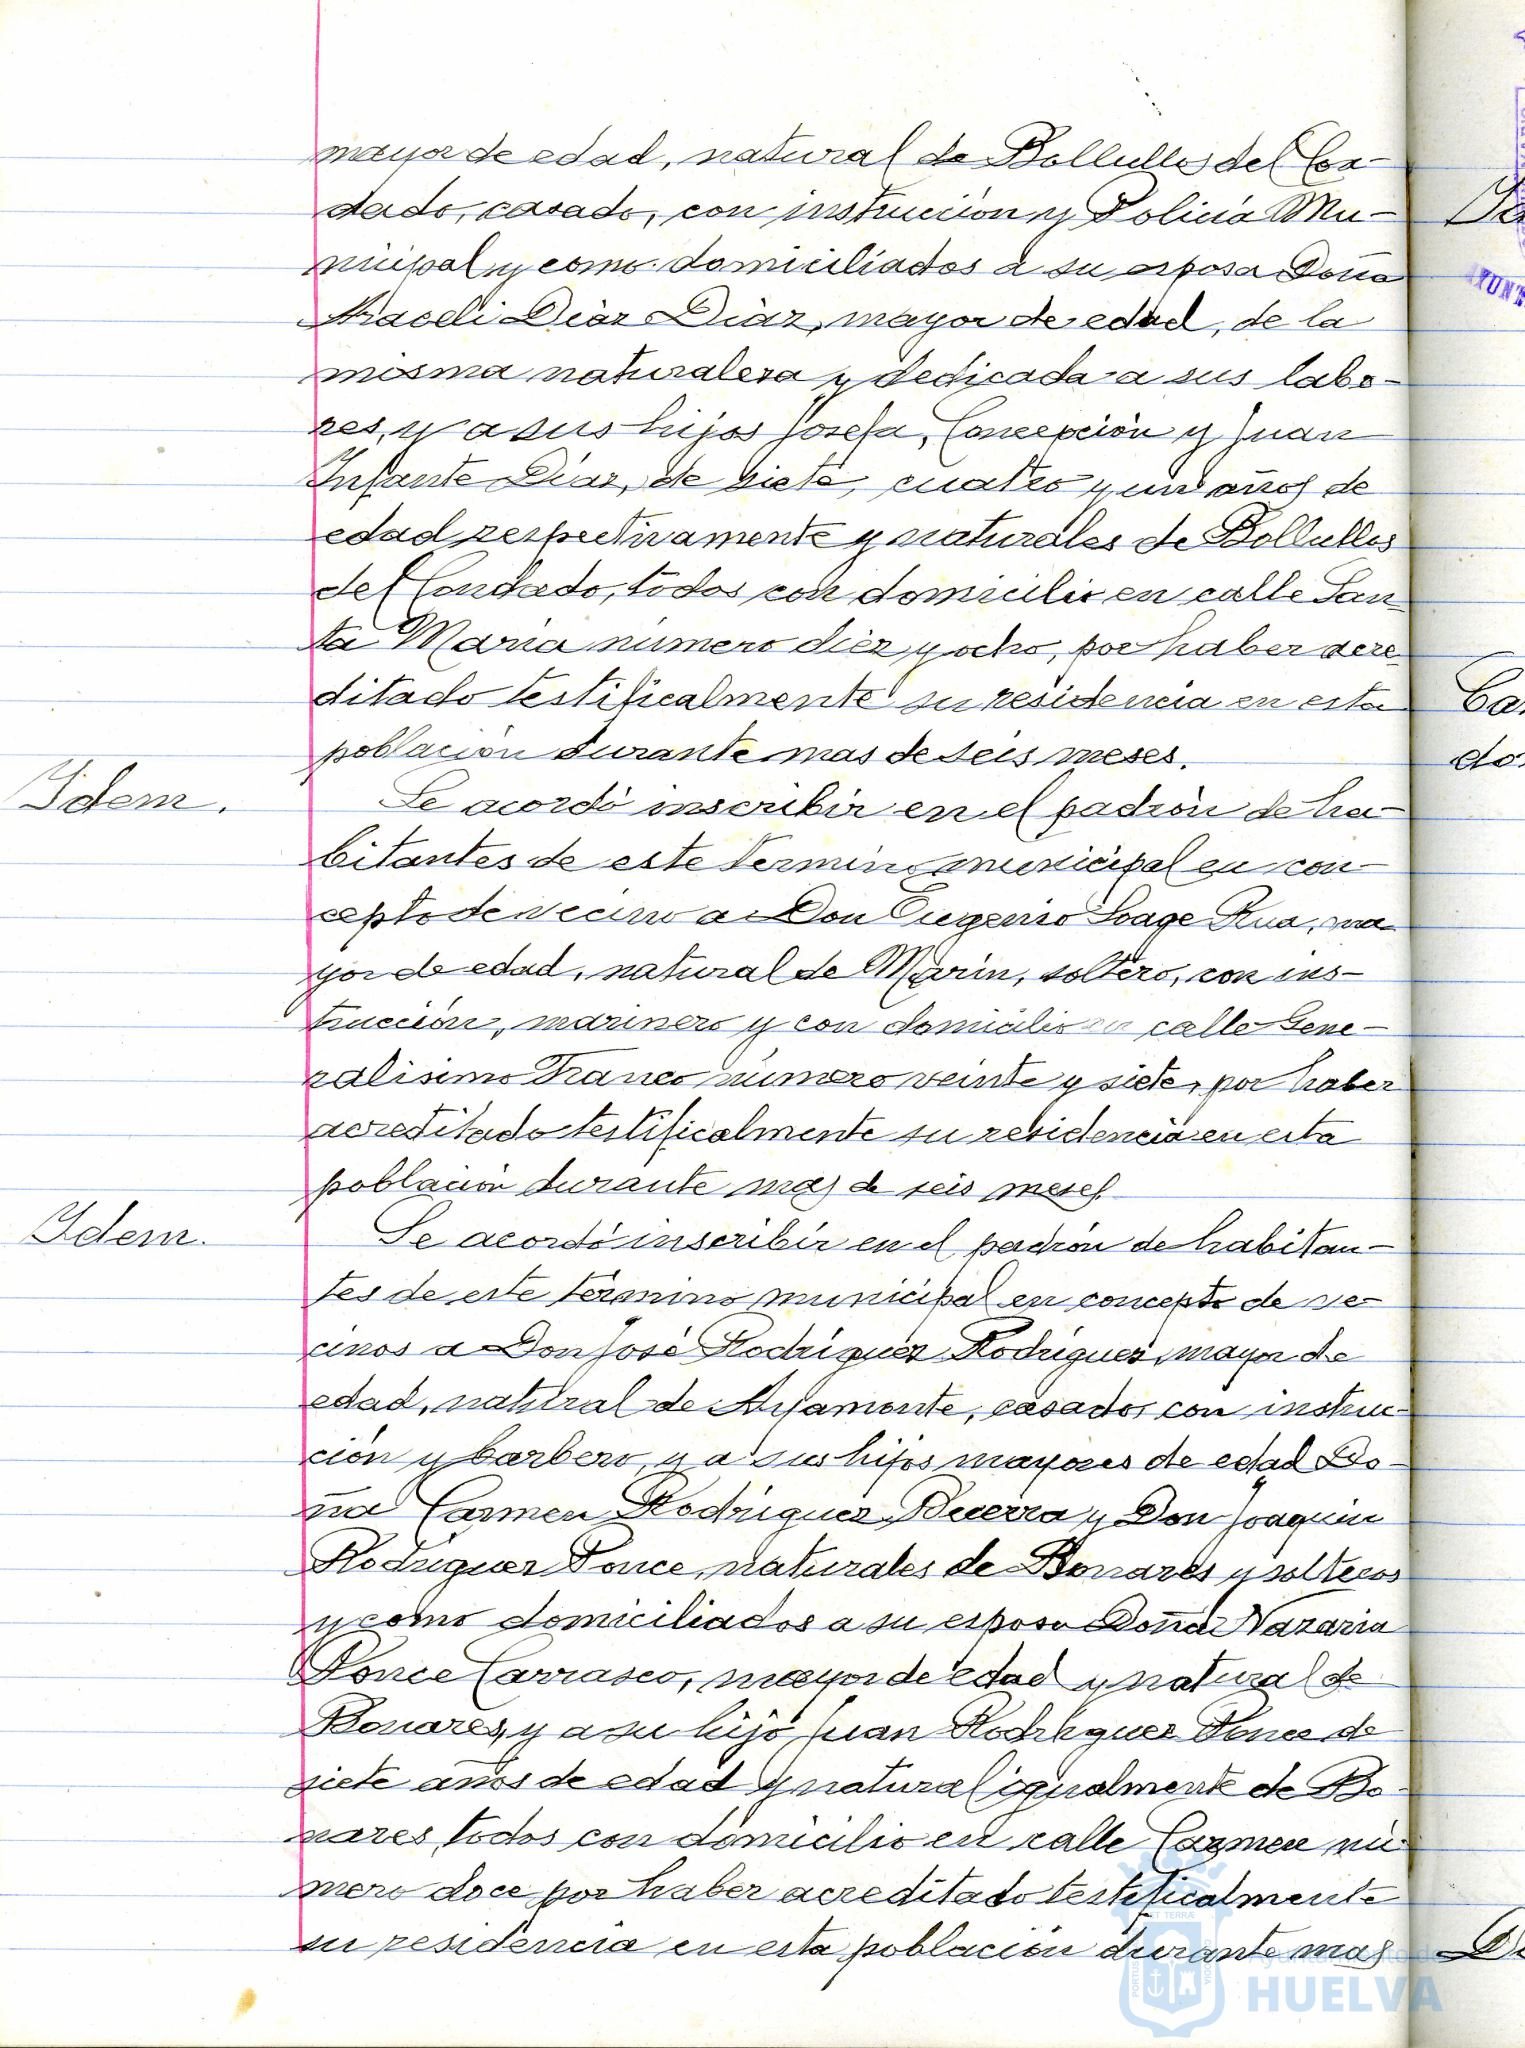 mayor de edad, natural de Bollullos del Con-
dado, casado, con instrucción y Policia Mu-
nicipal y como domiciliados a su esposa Doña
Araceli Diaz Diaz, mayor de edad, de la
misma naturaleza y dedicada a sus labo-
res, y a sus hijos Josefa, Concepción y Juan
Infante Diaz, de siete, cuatro y un años de
edad respectivamente y naturales de Bollullos
del Condado, todos con domicilio en calle San
ta Maria número diez y ocho, por haber acre
ditado testificalmente su residencia en esta
población durante mas de seis meses.
Idem.
Se acordó inscribir en el padrón de ha-
bitantes de este termino municipal en con-
cepto de vecino a Don Eugenio Soage Rua, ma
yor de edad, natural de Marin, soltero, con ins-
trucción, marinero y con domicilio en calle Gene-
ralisimo Franco número veinte y siete, por haber
acreditado testificalmente su residencia en esta
población durante mas de seis meses
Idem.
Se acordó inscribir en el padrón de habitan-
tes de este término municipal en concepto de ve-
cinos a Don José Rodriguez Rodriguez, mayor de
edad, natural de Ayamonte, casado, con instruc-
ción y barbero, y a sus hijos mayores de edad Do-
ña Carmen Rodriguez Becerra y Don Joaquin
Rodriguez Ponce, naturales de Bonares y solteros
y como domiciliados a su esposa Doña Nazaria
Ponce Carrasco, mayor de edad y natural de
Bonares, y a su hijo Juan Rodriguez Ponce de
siete años de edad y natural igualmente de Bo-
nares, todos con domicilio en calle Carmen nú-
mero doce por haber acreditado testificalmente
su residencia en esta población durante mas
Ayuntamiento de
HUELVA